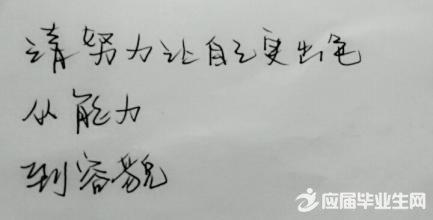 请努力让自己变出色
从能力
到容貌
应届毕业生网